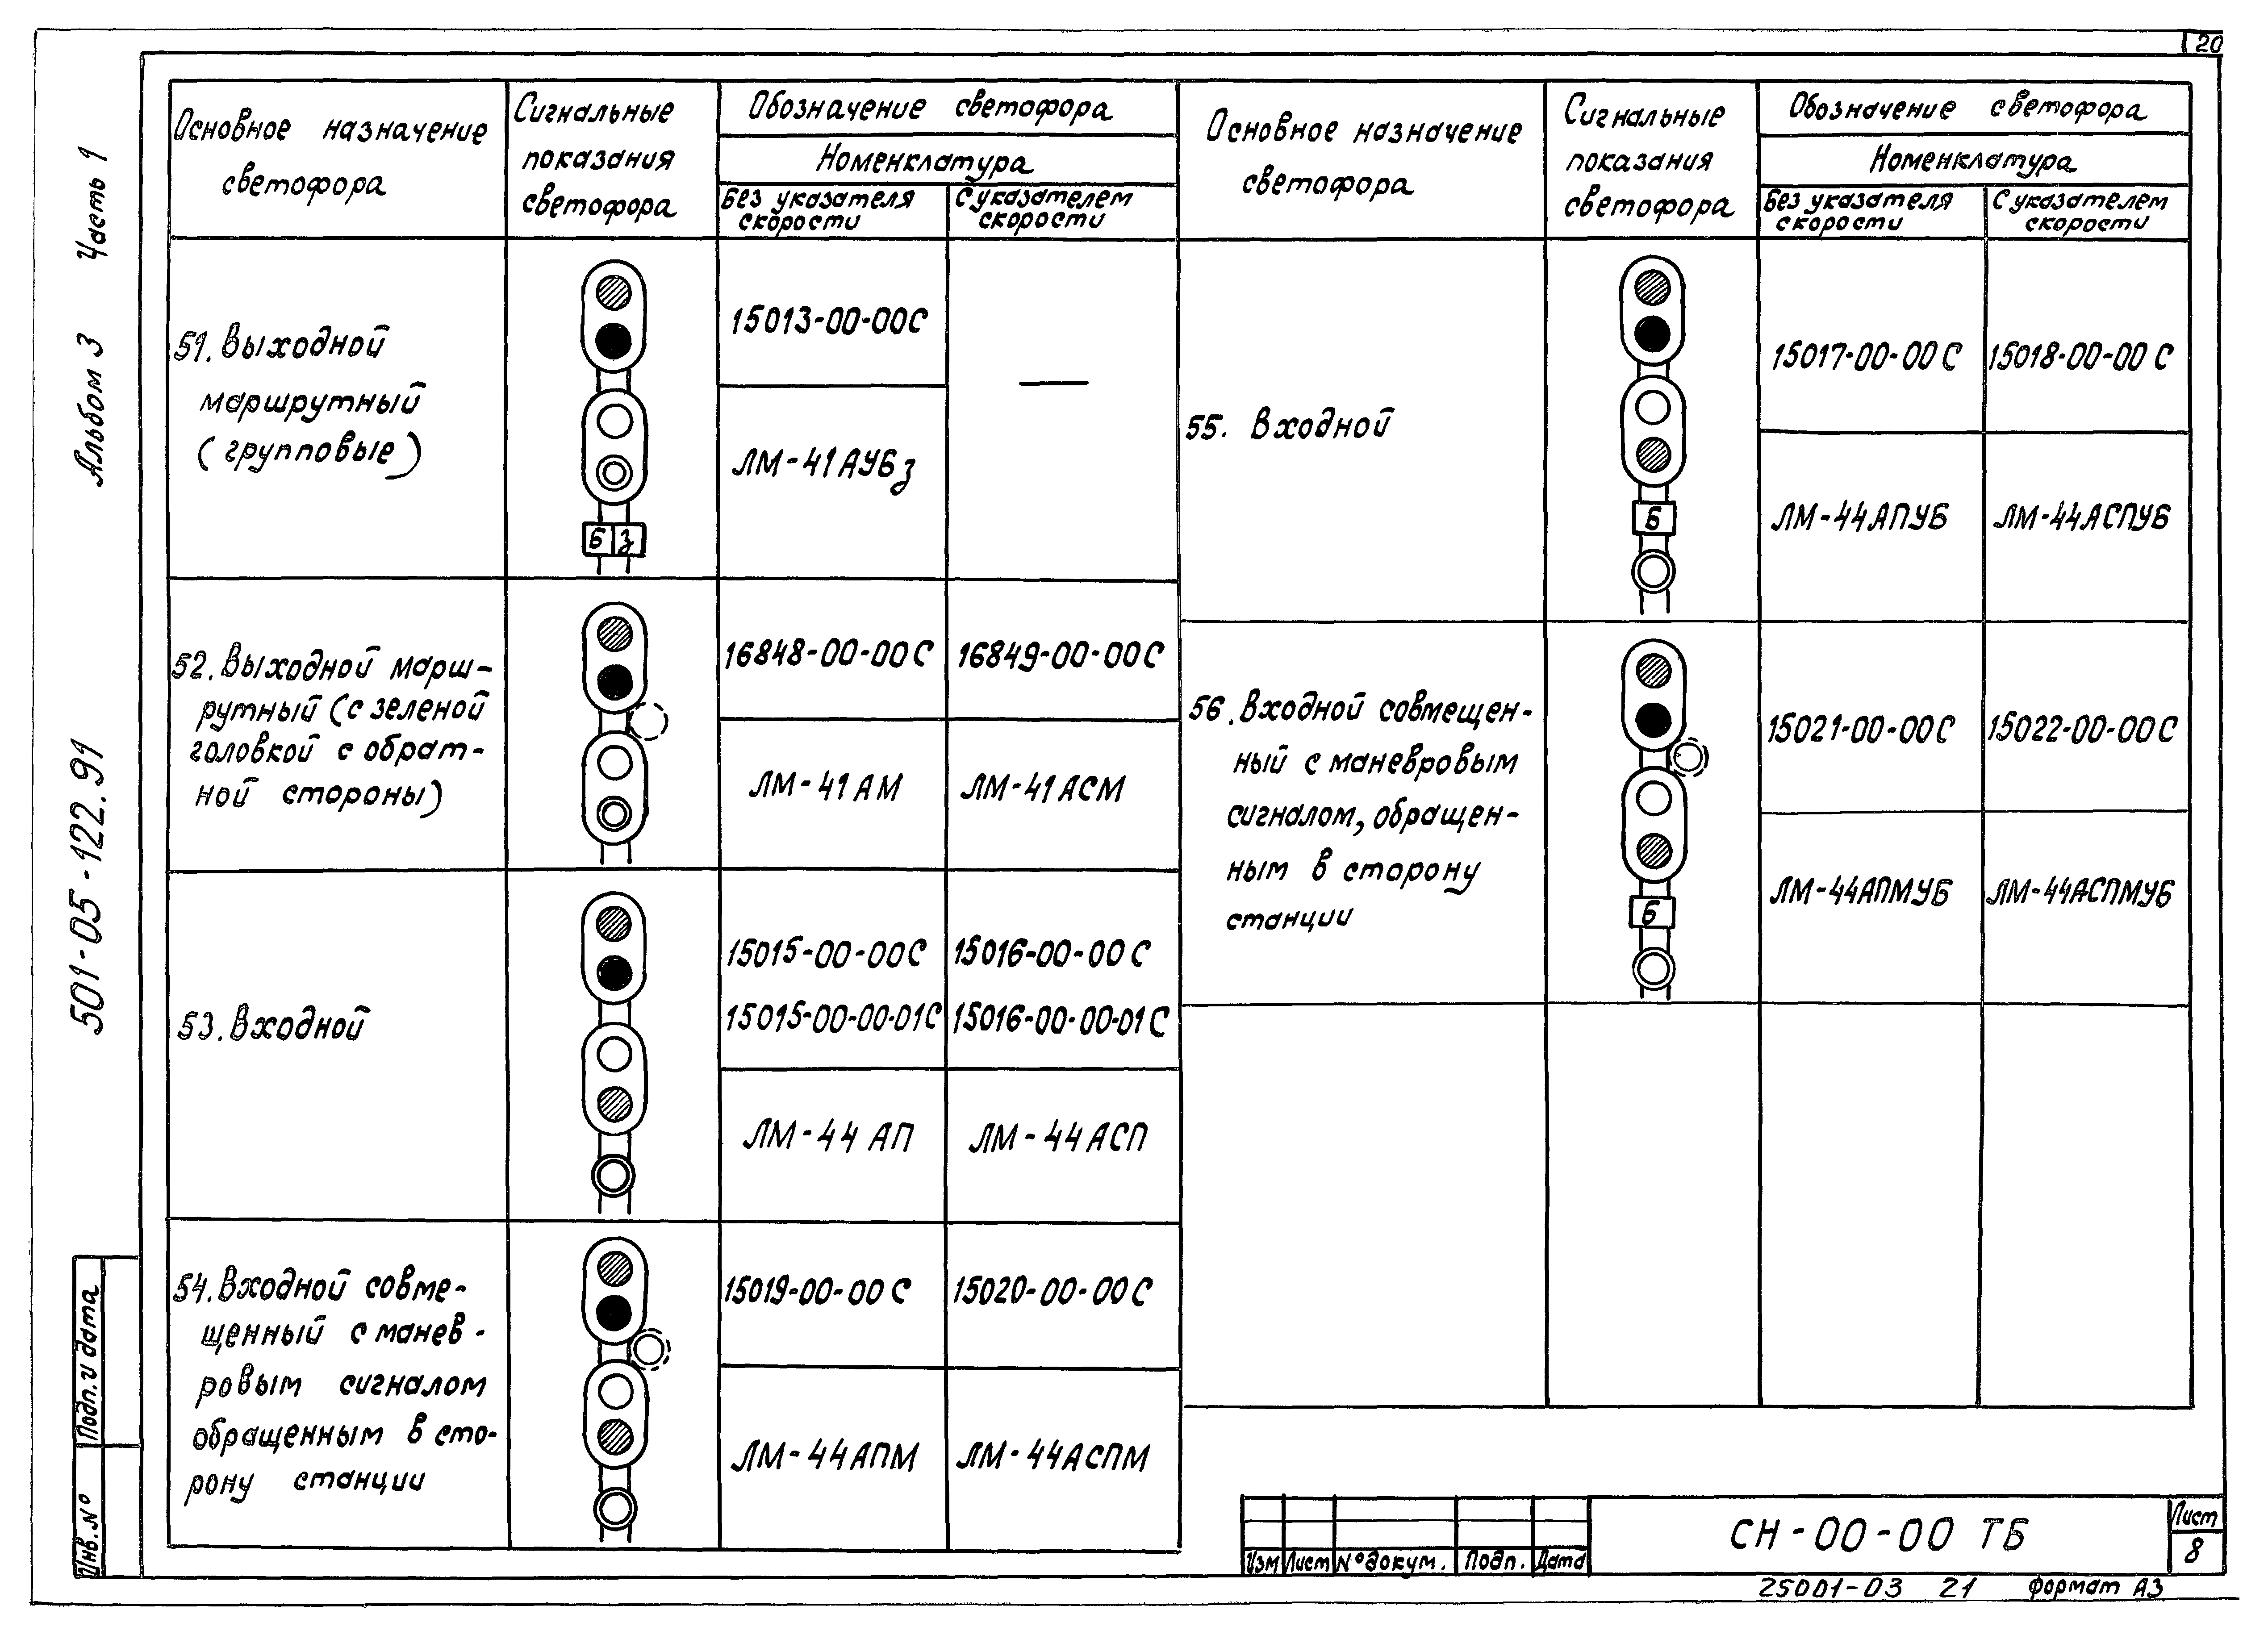 20
Альбом 3 Часть 1
501-05-122.91
Подп. и дата
Инв. №
Основное назначение
светофора
Сигнальные
показания
светофора
Обозначение светофора
Номенклатура
Без указателя
скорости
С указателем
скорости
51. Выходной
маршрутный
(групповые)
Б З
15013-00-00С
—
ЛМ-41АУБз
52. Выходной марш-
рутный (с зеленой
головкой с обрат-
ной стороны)
16848-00-00С
16849-00-00С
ЛМ-41АМ
ЛМ-41АСМ
53. Входной
15015-00-00С
15016-00-00С
15015-00-00-01С
15016-00-00-01С
ЛМ-44 АП
ЛМ-44АСП
54. Входной совме-
щенный с манев-
ровым сигналом
обращенным в сто-
рону станции
15019-00-00С
15020-00-00С
ЛМ-44АПМ
ЛМ-44АСПМ
Основное назначение
светофора
Сигнальные
показания
светофора
Обозначение светофора
Номенклатура
Без указателя
скорости
С указателем
скорости
55. Входной
Б
15017-00-00С
15018-00-00С
ЛМ-44АПУБ
ЛМ-44АСПУБ
56. Входной совмещен-
ный с маневровым
сигналом, обращен-
ным в сторону
станции
Б
15021-00-00С
15022-00-00С
ЛМ-44АПМУБ
ЛМ-44АСПМУБ
Изм Лист № докум. Подп. Дата
СН-00-00 ТБ
Лист
8
25001-03 21 Формат А3